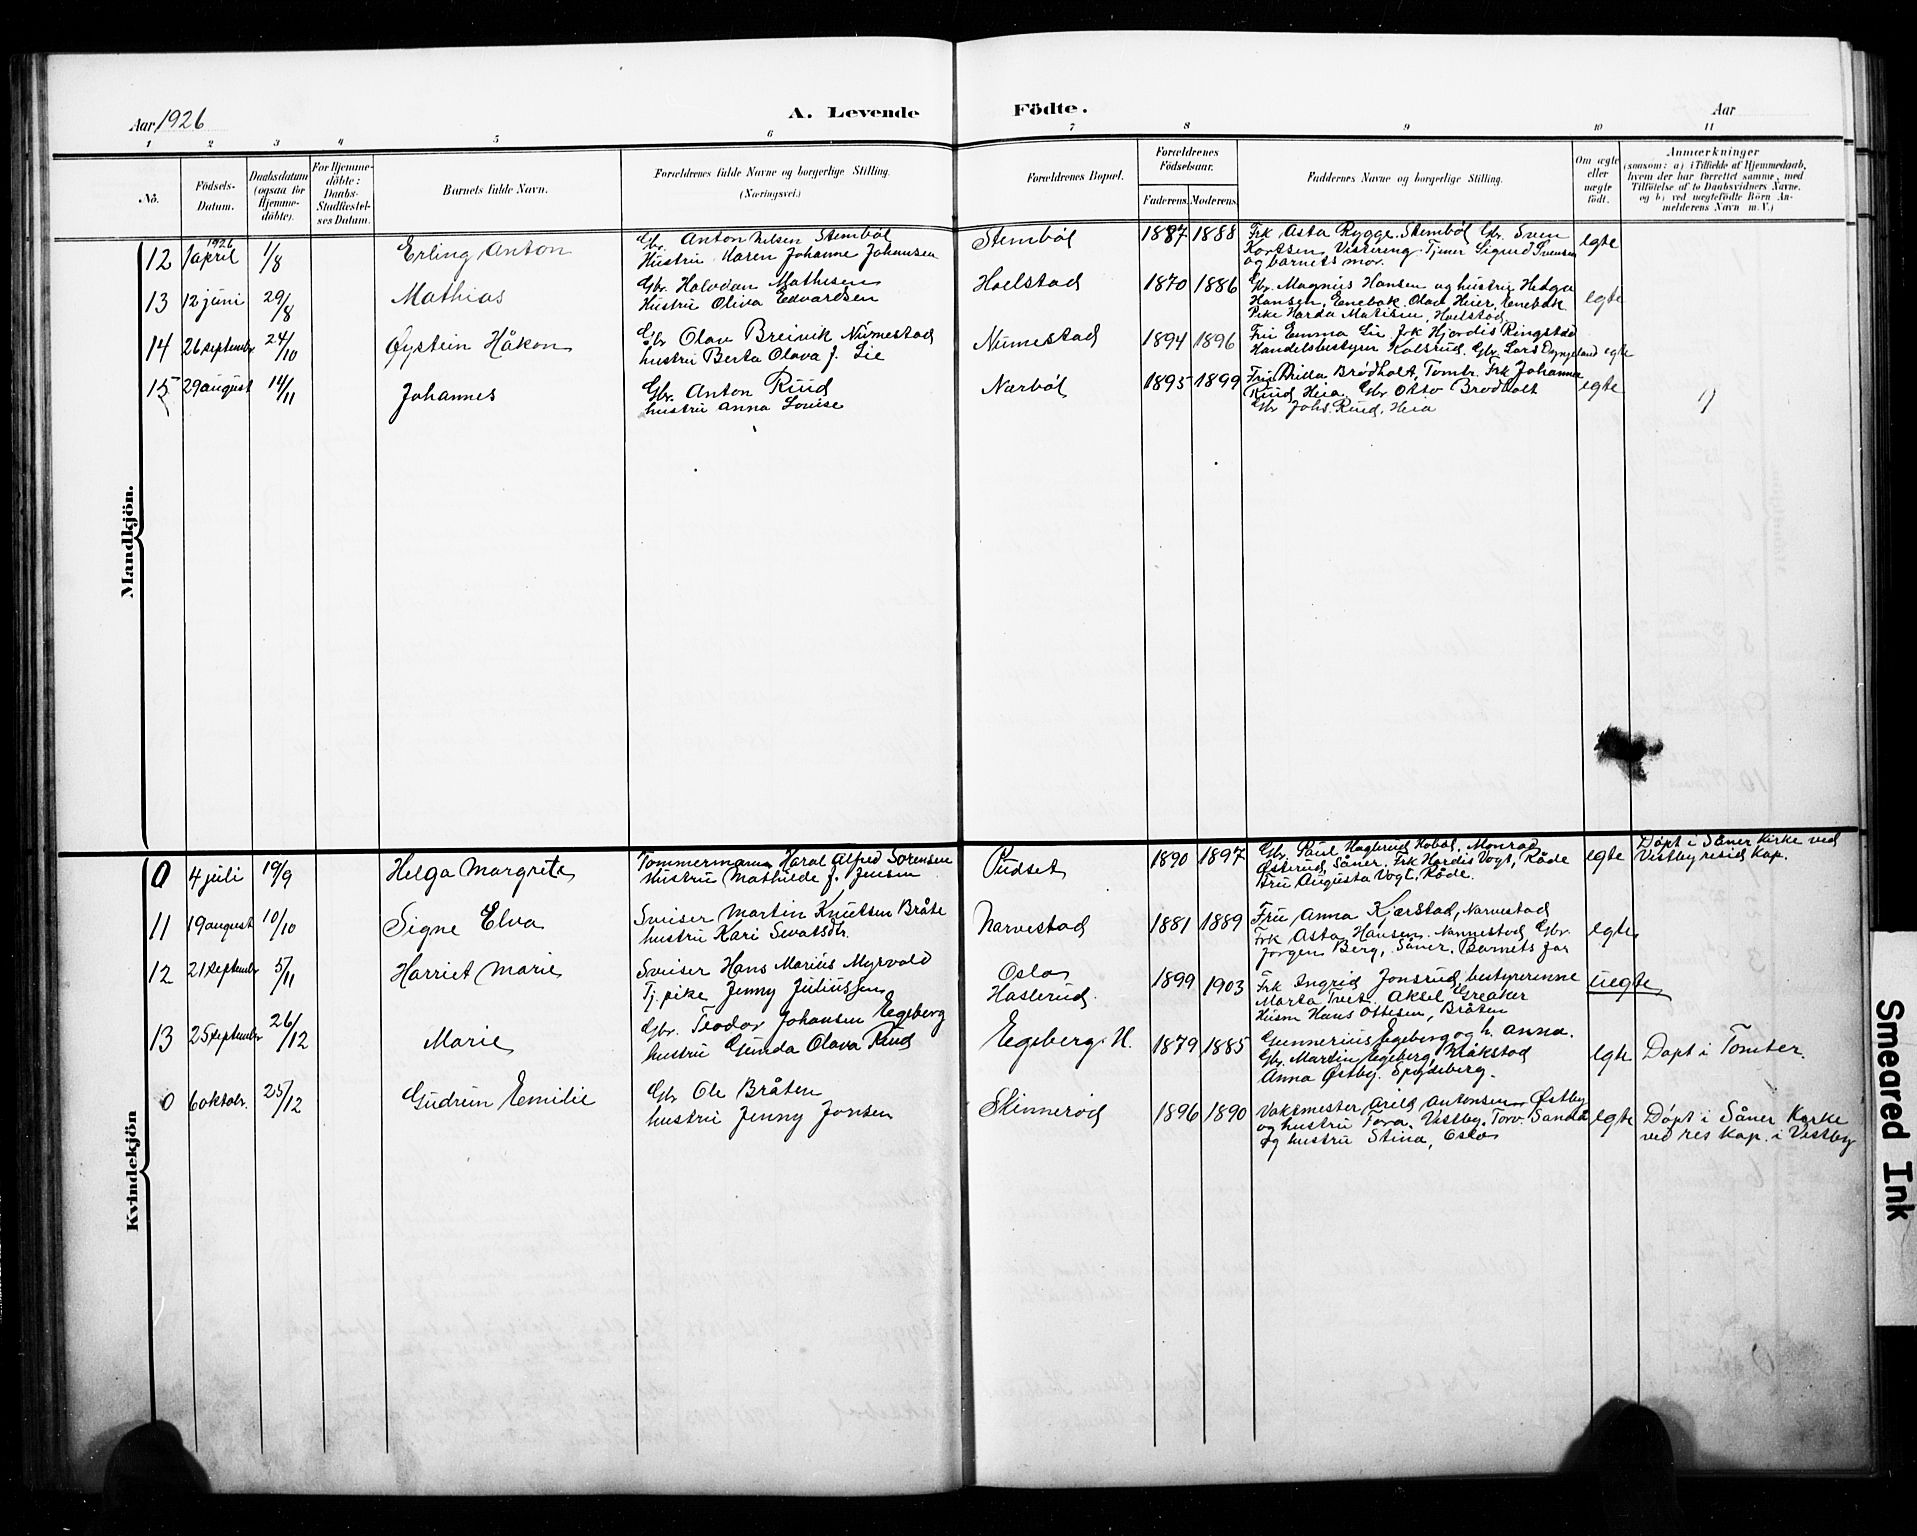 Aar 1926
A. Levende Födte.
Aar
1 2 3 4 5 6 7 8 9 10 11
No.
Födsels-Datum.
Daabsdatum (ogsaa for Hjemme-döbte).
For Hjemme-döbte: Daabs-Stadfæstel-ses Datum.
Barnets fulde Navn.
Forældrenes fulde Navne og borgerlige Stilling. (Næringsvei.)
Forældrenes Bopæl.
Forældrenes Födselsaar.
Faderens. Moderens.
Faddernes Navne og borgerlige Stilling.
Om ægte eller uægte födt.
Anmærkninger
(saasom: a) i Tilfælde af Hjemmedaab, hvem der har forrettet samme, med Tilföielse af to Daabsvidners Navne, og b) ved uægtefödte Börn Anmelderens Navn m. V.)
Mandkjön.
12 1926 1 april 1/8 Erling Anton
Gbr. Anton Nilsen Stembøl
Hustru Karen Johanne Johansen
Stembøl 1887 1888
Frk Asta Rygge. Stembøl Gbr. Sven
Kortsen Vestereng. Tjener Sigurd Svensen
og barnets mor.
egte
13 12 juni 29/8 Mathias
Gbr. Halvdan Mathisen
Hustru Oliva Edvardsen
Hoelstad 1870 1886
Gbr. Magnus Hansen og hustru Helga
Hansen, Enebak. Olav Heier, Enebak
Pike Harda Matisen, Hoelstad
egte
14 26 septembr 24/10 Øystein Håkon
Gbr Olav Breivik Numestad
hustru Berta Olava f. Lie
Numestad 1894 1896
Fru Emma Lie Frk Hjørdis Ringstad
Handelsbestyrer Kolsrud. Gbr Lars
egte
15 29 august 14/11 Johannes
Gbr. Anton Ruud
hustru Anna Louise
Narbøl 1895 1899
Frue Brodholt Tomtr. Frk Johanne
Ruud Heia, Gbr Otto Brodholt
Gbr Johs. Ruud, Heia
egte
1)
Kvindekjön
0 4 juli 19/9 Helga Margrete
Tømmermann Haral Alfred Sorensen
Hustru Mathilde f. Jensen
Pudset 1890 1897
Gbr. Paul Haglerud Hobøl, Monrad
Østerud, Såner, Frk Hardis Vogt, Råde
Fru Augusta Vogt, Råde.
egte
Døpt i Såner kirke ved
Vestby resid kap.
11 19 august 10/10 Signe Elva
Sveiser Martin Knutsen Bråte
hustru Kari Sevatsdtr.
Narvestad 1881 1889
Fru Anna Kjærstad, Narvestad
Frk Asta Hansen, Nannestad Gbr.
Jørgen Berg, Såner. Barnets far
egte
12 21 september 5/11 Harriet Marie
Sveiser Hans Marius Myrvold
Tj. pike Jenny Juliussen
Oslo
Haslerud.
1899 1903
Frk Ingrid Jonsrud, bestyrerinne
Marta Tvet. Aksel Greaker
Husm Hans Ottesen, Bråten
uegte
13 25 september 26/12 Marie
Gbr. Teodor Johansen Egeberg
hustru Gunda Olava Rud
Egeberg. H. 1879 1885
Gunnerius Egeberg og h. Anna.
Gbr. Martin Egeberg, Kråkstad
Anna Østby. Spydeberg.
egte
Døpt i Tomter.
0 6 oktobr. 25/12 Gudrun Emilie
Gbr Ole Bråten
hustru Jenny Jonsen
Skinnerød 1896 1890
Vaktmester Arild Antonsen Østby
og hustru Tora, Vestby. Torv. Sandå
og hustru Stina, Oslo
egte
Døpt i Såner Kirke
ved res kap. i Vestby
Smeared Ink